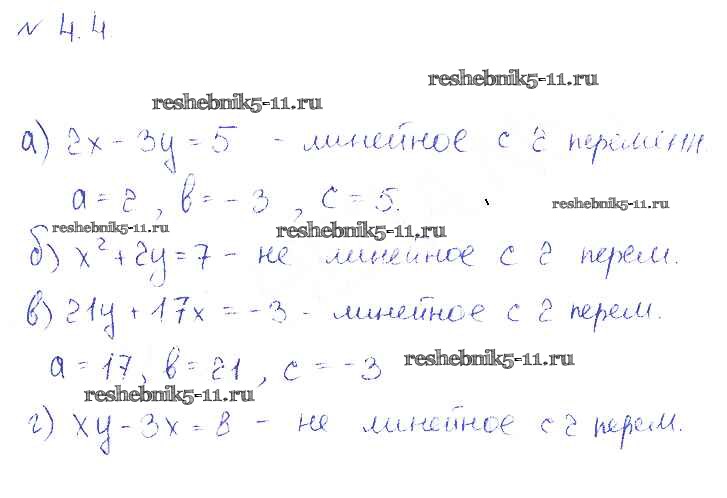 № 4.4.
reshebnik5-11.ru
reshebnik5-11.ru
а) 2x - 3y = 5 - линейное с 2 переменн.
a = 2, в = - 3, c = 5.
reshebnik5-11.ru
reshebnik5-11.ru
reshebnik5-11.ru
б) x² + 2y = 7 - не линейное с 2 перем.
в) 21y + 17x = -3 - линейное с 2 перем.
a = 17, в = 21, c = -3
reshebnik5-11.ru
reshebnik5-11.ru
г) xy - 3x = 8 - не линейное с 2 перем.